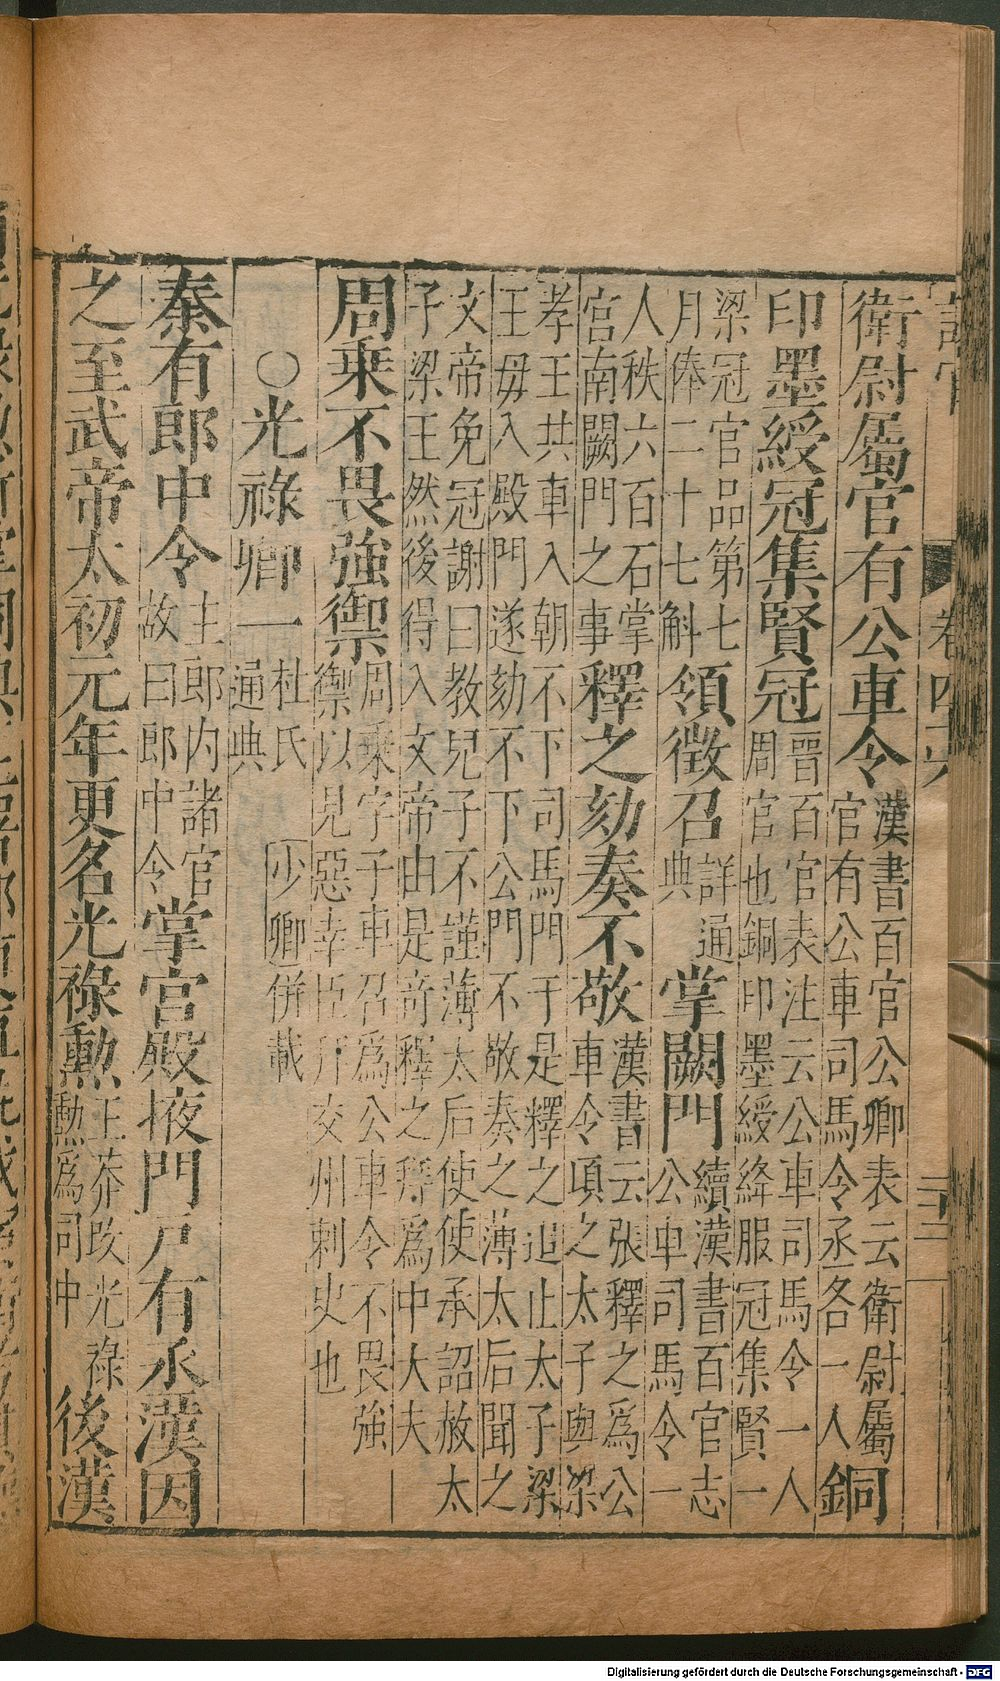 衛尉屬官有公車令漢書百官公卿表云衛尉屬官有公車司馬令丞各一人銅
印墨綬冠集賢冠晋百官表注云公車司馬令一人周官也銅印墨綬絳服冠集賢一
梁冠官品第七月俸二十七斛領徵召詳通典掌闕門續漢書百官志公車司馬令一
人秩六百石掌宮南闕門之事釋之劾奏不敬漢書云張釋之為公車令項之太子與梁
孝王共車入朝不下司馬門于是釋之追止太子梁王毋入殿門遂劾不下公門不敬奏之薄太后聞之
文帝免冠謝曰教兒子不謹薄太后使使承詔赦太子梁王然後得入文帝由是竒釋之拜為中大夫
周乗不畏強禦周乗字子車召為公車令不畏強禦以見惡幸臣斥交州刺史也
〇光祿卿一杜氏通典 少卿併載
秦有郎中令主郎内諸官故曰郎中令掌宮殿掖門戸有丞漢因
之至武帝太初元年更名光祿勲王莽改光祿勲為司中後漢
卷四六
二十二
Digitalisierung gefördert durch die Deutsche Forschungsgemeinschaft - DFG